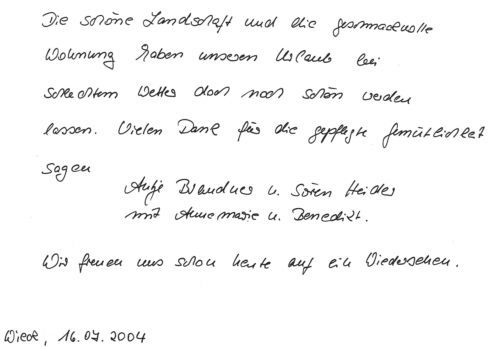 Die schöne Landschaft und die geschmackvolle
Wohnung haben unseren Urlaub bei
schlechtem Wetter doch noch schön werden
lassen. Vielen Dank für die gepflegte Gemütlichkeit
sagen
Antje Brandner u. Sören Heider
mit Annemarie u. Benedikt.
Wir freuen uns schon heute auf ein Wiedersehen.
Wieck, 16.07.2004